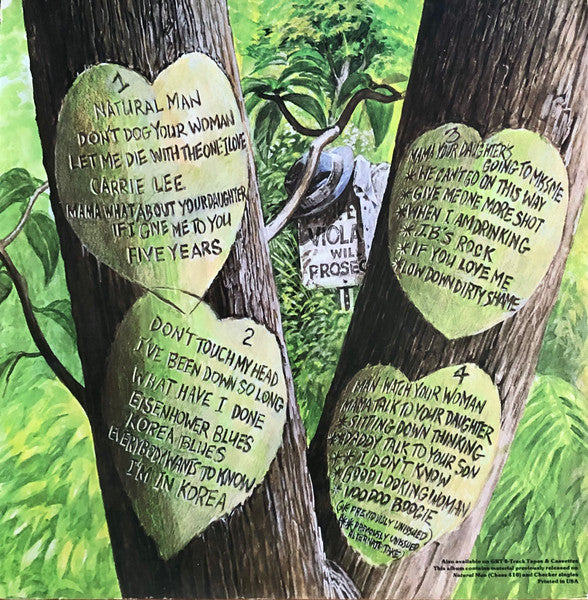 1
NATURAL MAN
DON'T DOG YOUR WOMAN
LET ME DIE WITH THE ONE I LOVE
CARRIE LEE
MAMA WHAT ABOUT YOUR DAUGHTER
IF I GIVE ME TO YOU
FIVE YEARS
2
DON'T TOUCH MY HEAD
I'VE BEEN DOWN SO LONG
WHAT HAVE I DONE
EISENHOWER BLUES
KOREA BLUES
EVERYBODY WANTS TO KNOW
I'M IN KOREA
VIOLA
WIL
PROSEC
3
MAMA YOUR DAUGHTER'S
GOING TO MISS ME
*WE CAN'T GO ON THIS WAY
*GIVE ME ONE MORE SHOT
*WHEN I AM DRINKING
*J.B'S ROCK
*IF YOU LOVE ME
*LOW DOWN DIRTY SHAME
4
MAN WATCH YOUR WOMAN
MAMA TALK TO YOUR DAUGHTER
*SITTING DOWN THINKING
*DADDY TALK TO YOUR SON
*I DON'T KNOW
*GOOD LOOKING WOMAN
VOODOO BOOGIE
(* PREVIOUSLY UNISSUED
** PREVIOUSLY UNISSUED
ALTERNATE TAKE)
Also available on GRT 8-Track Tapes & Cassettes
This album contains material previously released on
Natural Man (Chess 410) and Checker singles
Printed in USA